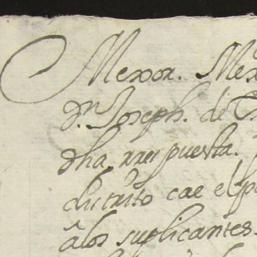 Mexor. Mex
Dn. Joseph. de
dha rrespuesta.
districto cae el
â los suplicantes.